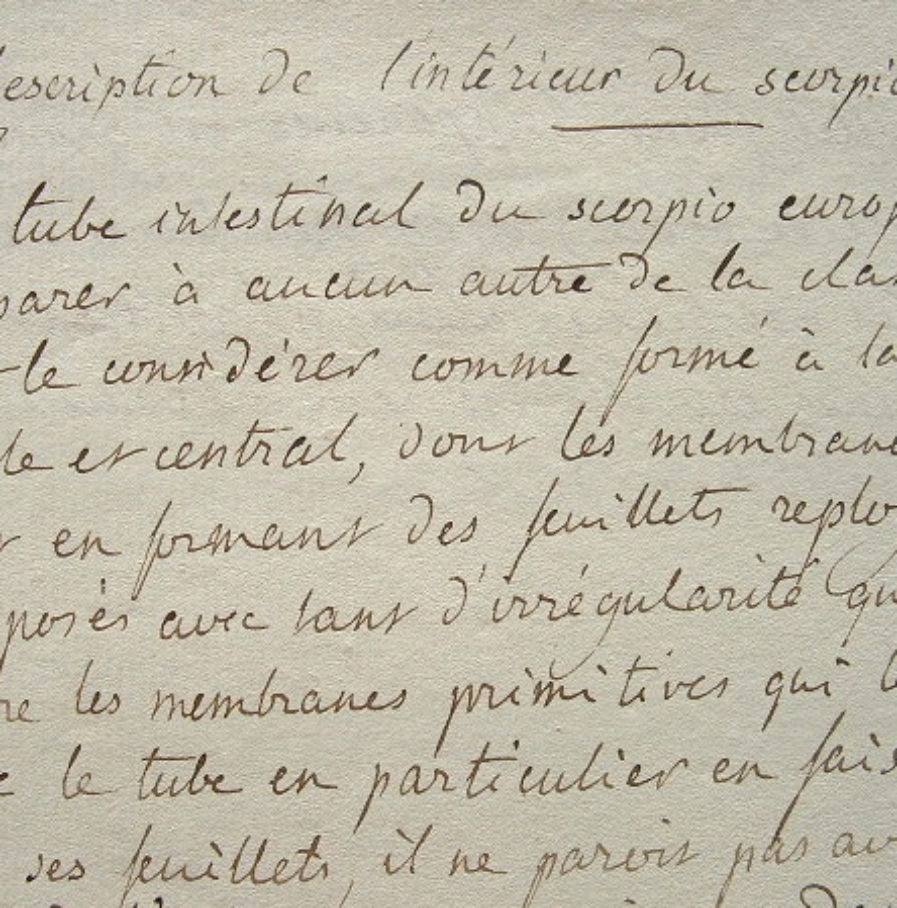 description de l'intérieur du scorpio
tube intestinal du scorpio europ
parer à aucun autre de la clas
-le considérer comme formé à la
le et central, dont les membrane
en formant des feuillets reploy
posés avec tant d'irrégularité qu
re les membranes primitives qui l
le tube en particulier en fais
ses feuillets, il ne paroit pas av